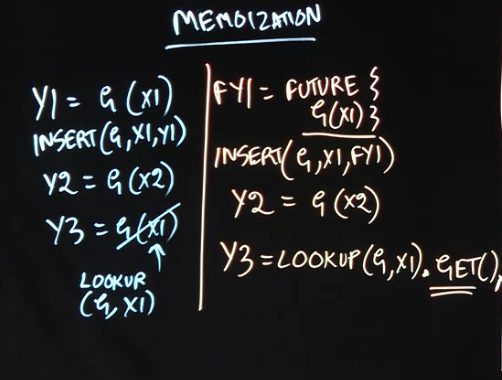 MEMOIZATION
Y1 = G(X1)
INSERT(G,X1,Y1)
Y2 = G(X2)
Y3 = G(X1)
LOOKUP
(G,X1)
FY1 = FUTURE {
G(X1) }
INSERT(G,X1,FY1)
Y2 = G(X2)
Y3 = LOOKUP(G,X1).GET();